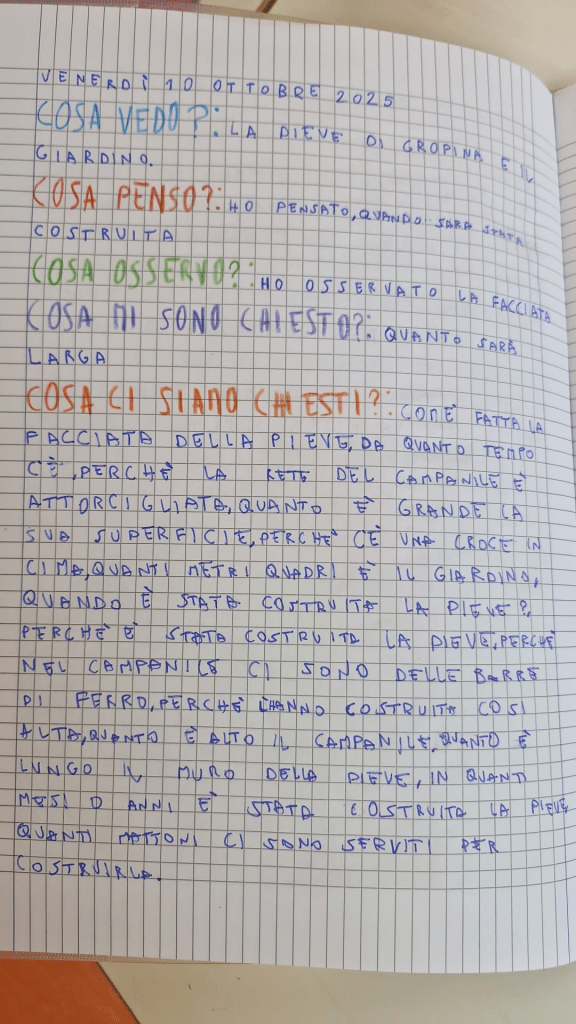 VENERDÌ 10 OTTOBRE 2025
COSA VEDO?: LA PIEVE DI GROPINA E IL
GIARDINO.
COSA PENSO?: HO PENSATO, QUANDO SARÀ STATA
COSTRUITA
COSA OSSERVO?: HO OSSERVATO LA FACCIATA
COSA MI SONO CHIESTO?: QUANTO SARÀ
LARGA
COSA CI SIAMO CHIESTI?: COM'È FATTA LA
FACCIATA DELLA PIEVE, DA QUANTO TEMPO
C'È, PERCHÈ LA RETE DEL CAMPANILE È
ATTORCIGLIATA, QUANTO È GRANDE LA
SUA SUPERFICIE, PERCHÈ C'È UNA CROCE IN
CIMA, QUANTI METRI QUADRI È IL GIARDINO,
QUANDO È STATA COSTRUITA LA PIEVE?,
PERCHÈ È STATA COSTRUITA LA PIEVE, PERCHÈ
NEL CAMPANILE CI SONO DELLE BARRE
DI FERRO, PERCHÈ L'HANNO COSTRUITA COSÌ
ALTA, QUANTO È ALTO IL CAMPANILE, QUANTO È
LUNGO IL MURO DELLA PIEVE, IN QUANTI
MESI O ANNI È STATA COSTRUITA LA PIEVE
QUANTI MATTONI CI SONO SERVITI PER
COSTRUIRLA.